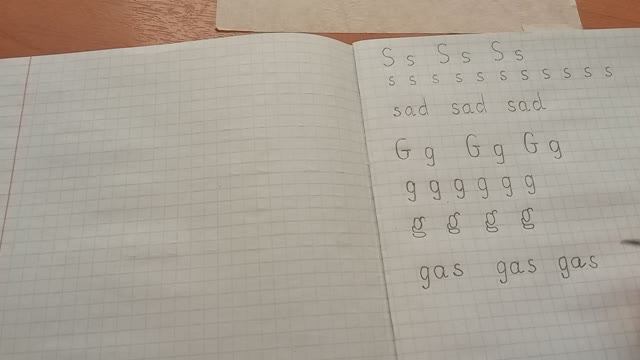 S s S s S s
s s s s s s s s s s s
sad sad sad
G g G g G g
g g g g g g
g g g g
gas gas gas